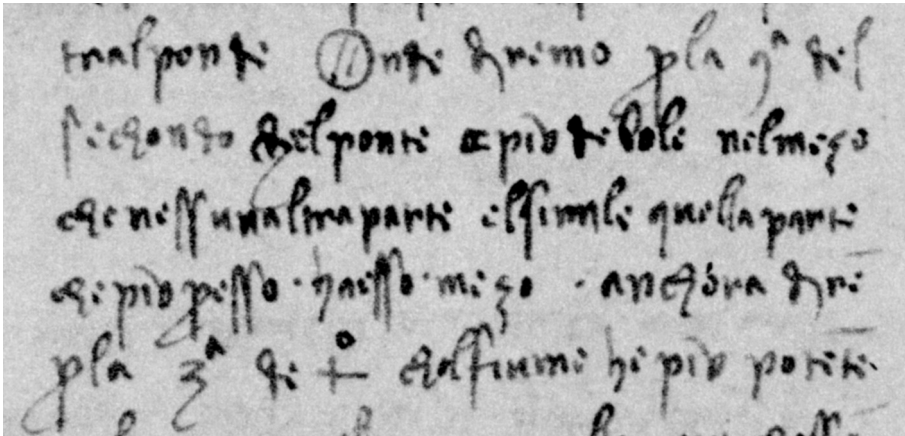 tralponde Onde diremo pla 9ª del
sechondo chelponte e piu debole nelmezo
che nessunaltra parte elsimile quella parte
che piu presso · haesso · mezo · anchora dire
pla 3ª de chalfiume he piu potete